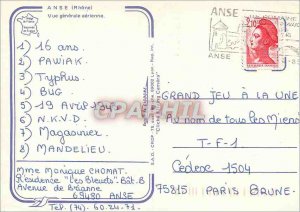 ANSE (Rhône)
Vue générale aérienne.
ANSE
ANSE
1) 16 ans.
2) PAWIAK.
3) Typhus.
4) BUG.
5) 19 Avril 194
6) N.K.V.D.
7) Magasinier.
8) MANDELIEU.
Mme Monique CHOMAT.
Résidence "Les Bleuets" Bât. B
Avenue de Brianne
69480 ANSE
Tel. (74). 60.24.71.
GRAND JEU À LA UNE
Au nom de tous les Miens
T-F-1
Cédexe 1504
75815 PARIS BRUNE.